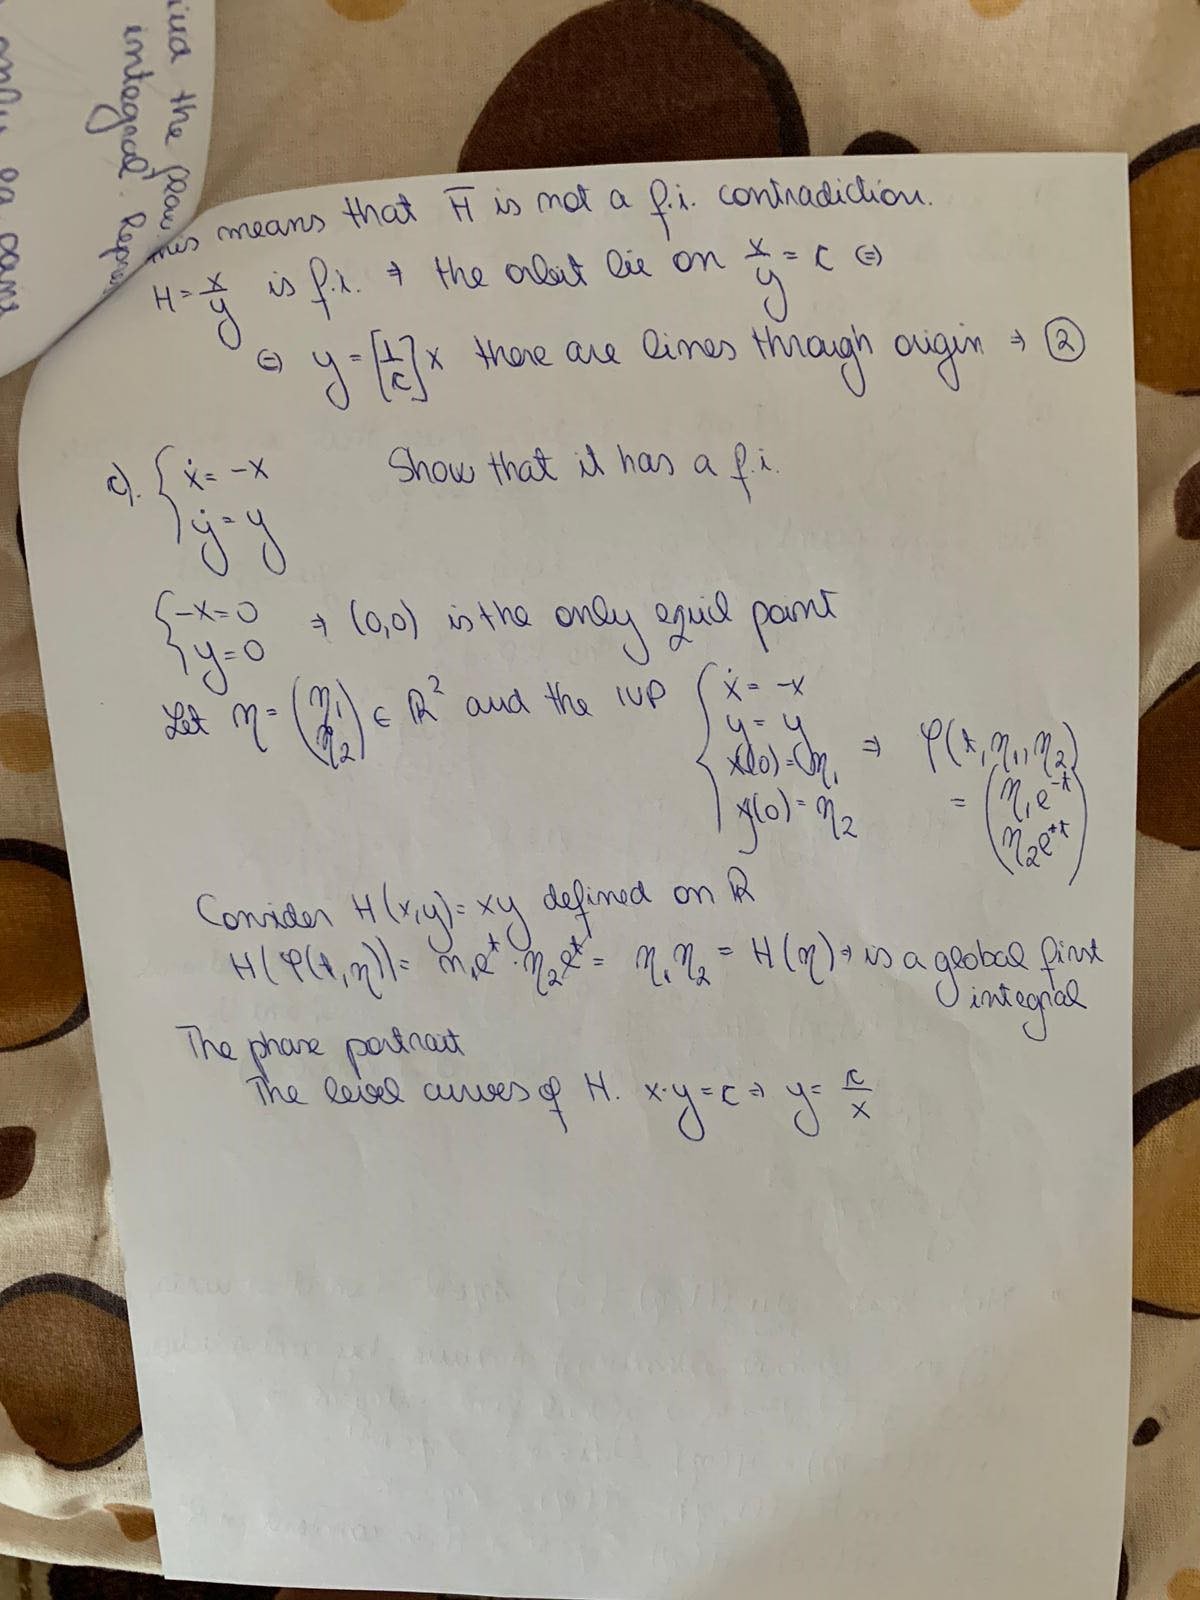 find the
integral. Repre
This means that H̄ is not a f.i. contradiction.
H = x/y is f.i. ⇒ the orbit lie on x/y = c ⇔
⇔ y = [1/c] x there are lines through origin ⇒ ②
c). { ẋ = -x Show that it has a f.i.
ẏ = y
{ -x = 0 ⇒ (0,0) is the only equil point
y = 0
Let η = (η1 η2) ∈ R² and the IVP { ẋ = -x
y = y
x(0) = η1 ⇒ φ(t, η1, η2)
y(0) = η2 = (η1e^-t
η2e^+t)
Consider H(x,y) = xy defined on R
H(φ(t,η)) = η1e^t · η2e^t = η1η2 = H(η) → is a global first
integral
The phase portrait
The level curves of H. x·y = c ⇒ y = c/x